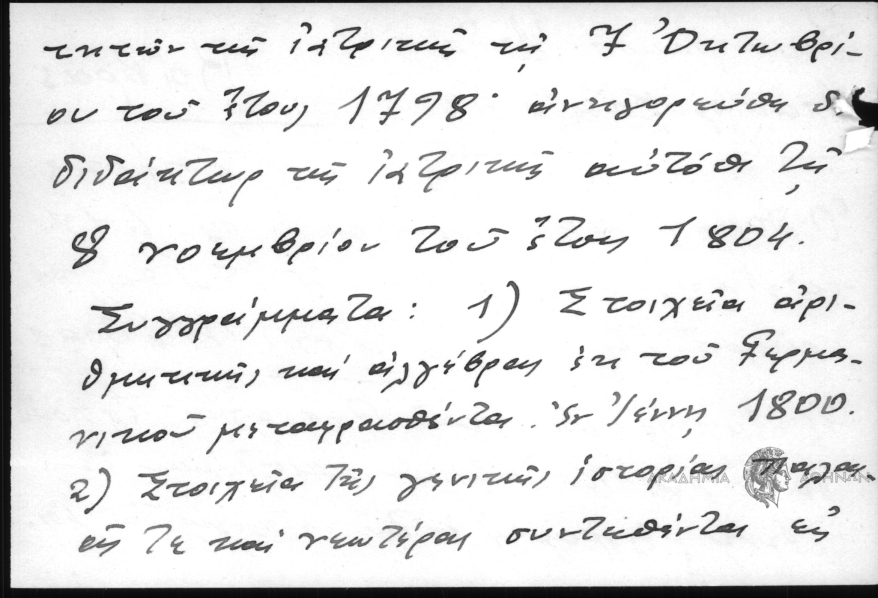 τητῶν τῆς ἰατρικῆς τῇ 7 Ὀκτωβρί-
ου τοῦ ἔτους 1798· ἀνηγορεύθη δὲ
διδάκτωρ τῆς ἰατρικῆς αὐτόθι τῇ
8 νοεμβρίου τοῦ ἔτους 1804.
Συγγράμματα: 1) Στοιχεῖα ἀρι-
θμητικῆς καί ἀλγέβρας ἐκ τοῦ Γερμα-
νικοῦ μεταφρασθέντα. Ἐν Ἰέννῃ 1800.
2) Στοιχεῖα τῆς γενικῆς ἱστορίας παλαι-
ᾶς τε καί νεωτέρας συντεθέντα εἰς
ΑΚΑΔΗΜΙΑ ΑΘΗΝΩΝ